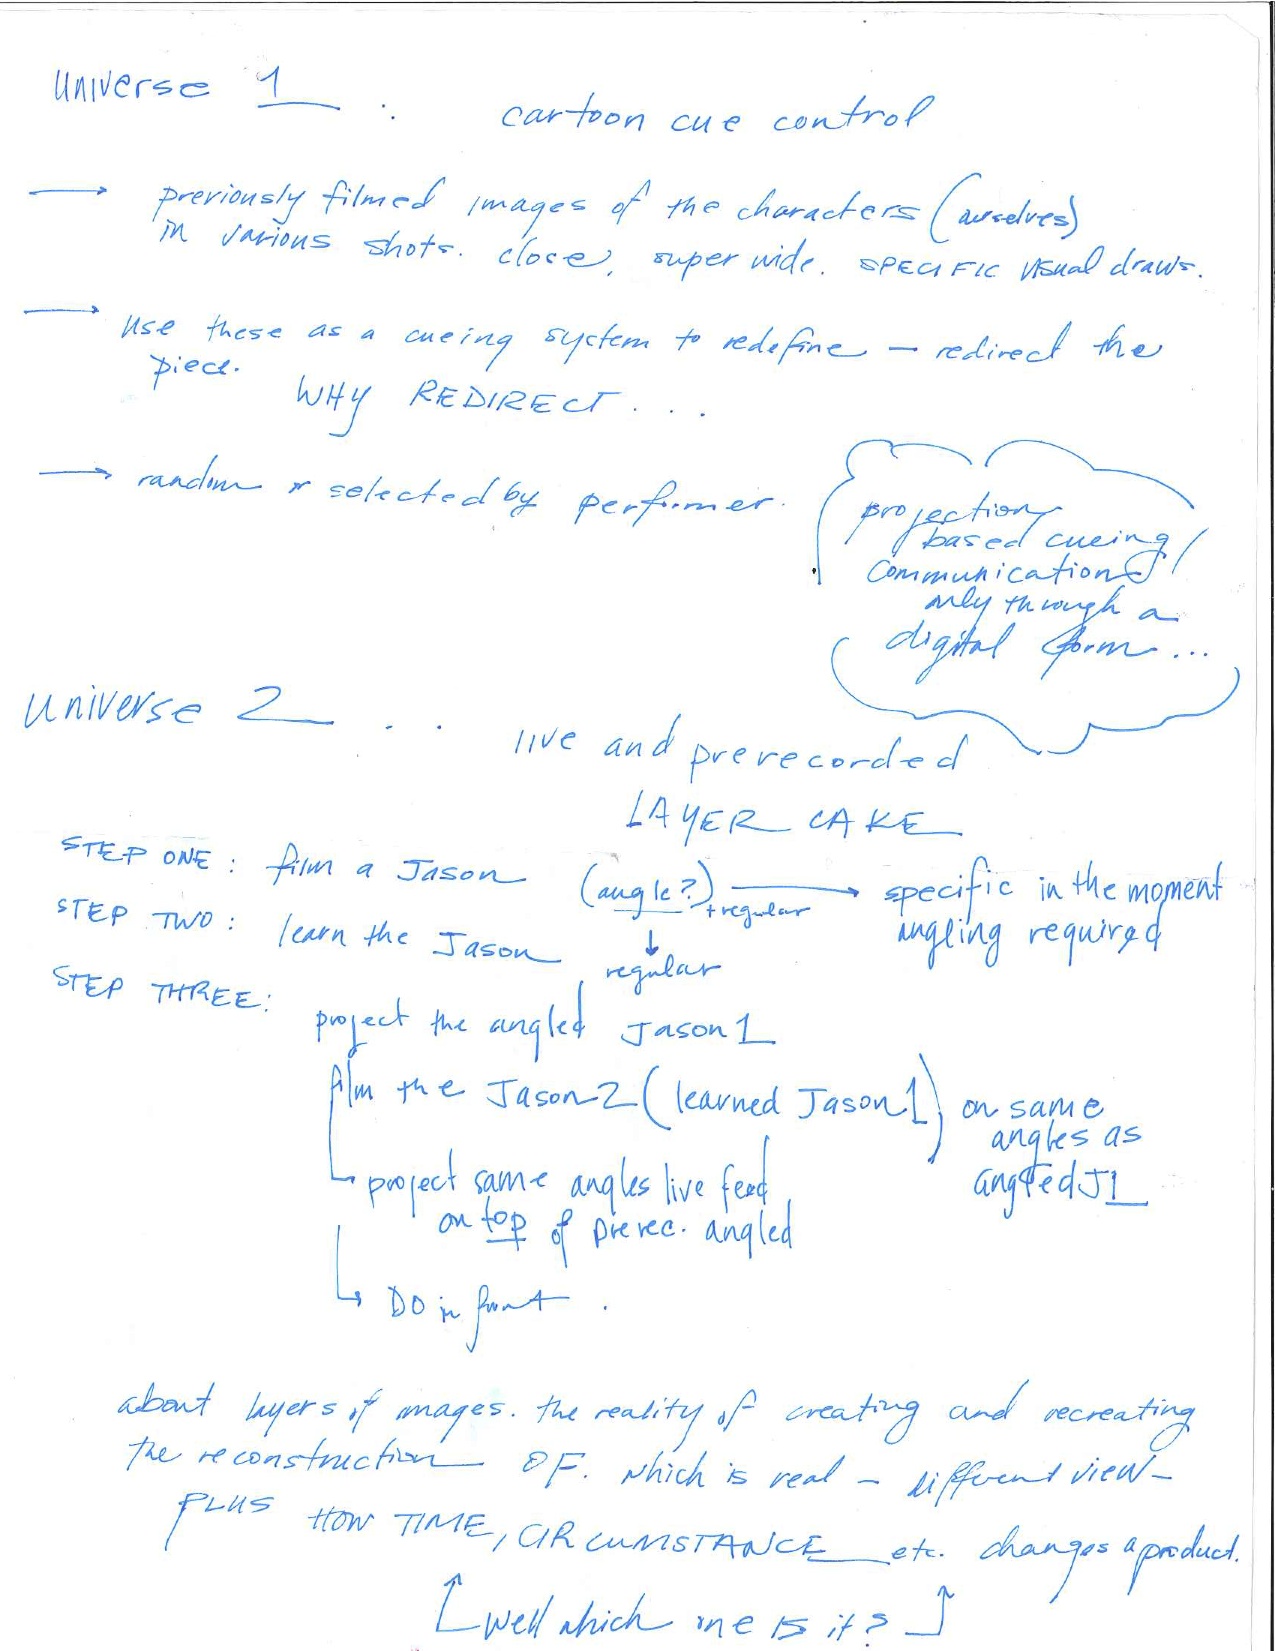 Universe 1 . .
cartoon cue control
→ previously filmed images of the characters (ourselves)
in various shots. close, super wide. SPECIFIC visual draws.
→ use these as a cueing system to redefine — redirect the
piece.
WHY REDIRECT . . .
→ random or selected by performer.
projection
based cueing/
communication
only through a
digital form ...
Universe 2 . . .
live and prerecorded
LAYER CAKE
STEP ONE: film a Jason (angle?) + regular → specific in the moment
angling required
STEP TWO: learn the Jason ↓
regular
STEP THREE:
project the angled Jason 1
film the Jason 2 (learned Jason 1) on same
angles as
angled J1
project same angles live feed
on top of prerec. angled
DO in front .
about layers of images. the reality of creating and recreating
the reconstruction OF. which is real — different view —
PLUS HOW TIME, CIRCUMSTANCE etc. changes a product.
[well which one is it?]